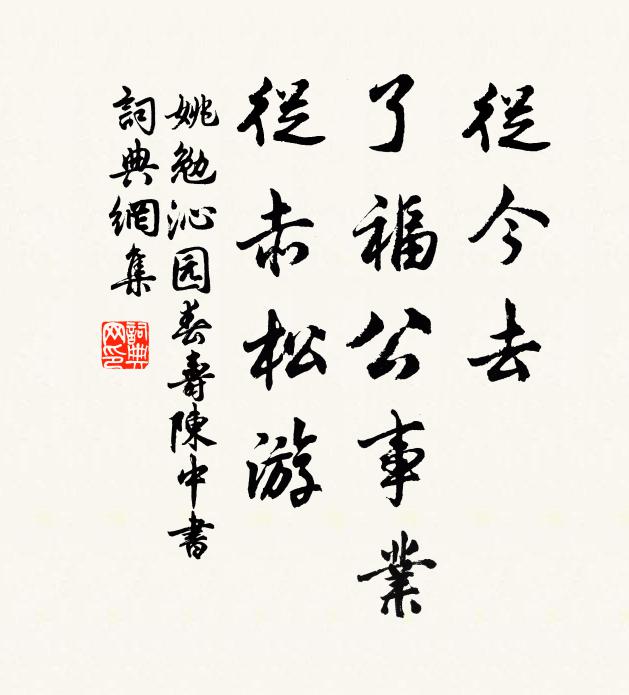 從今去
了福公事業
從赤松游
姚勉沁园春壽陳中書
詞典網集
詞典网印